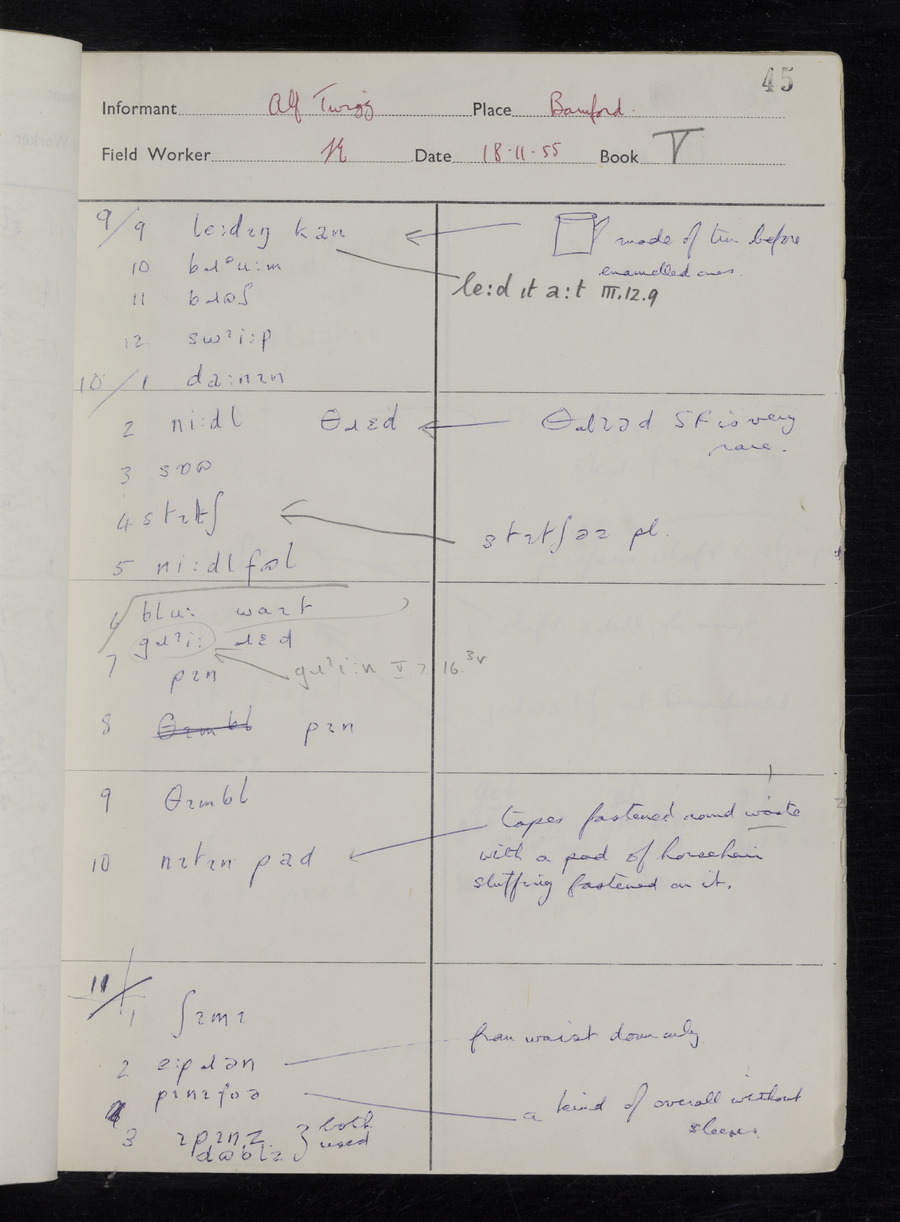 45
Informant Alf Twigg Place Bamford
Field Worker N Date 18·11·55 Book V
9/9 le:dɪŋ kan
made of tin before
enamelled ones.
10
le:d ɪt a:t III.12.9
11
12 swᶦi:p
10/1 da:nɪn
2 ni:dl θɹɛd θɹɪəd SF is very
rare.
3
4 stɪtʃ
stɪtʃəz pl.
5 ni:dl
6 blu:
gɹᶦi: ɹɛd
7 pɪn
gɹᶦi:n V.7.16
8 θɪmbl pɪn
9 θɪmbl
tapes fastened round waste
10 nɪtɪn pad
with a pad of horsehair
stuffing fastened on it.
11/1 ʃɪmɪ
from waist down only
2 e:pɹən
pɪnɪfɒə
a kind of overall without
sleeves.
3 both
used